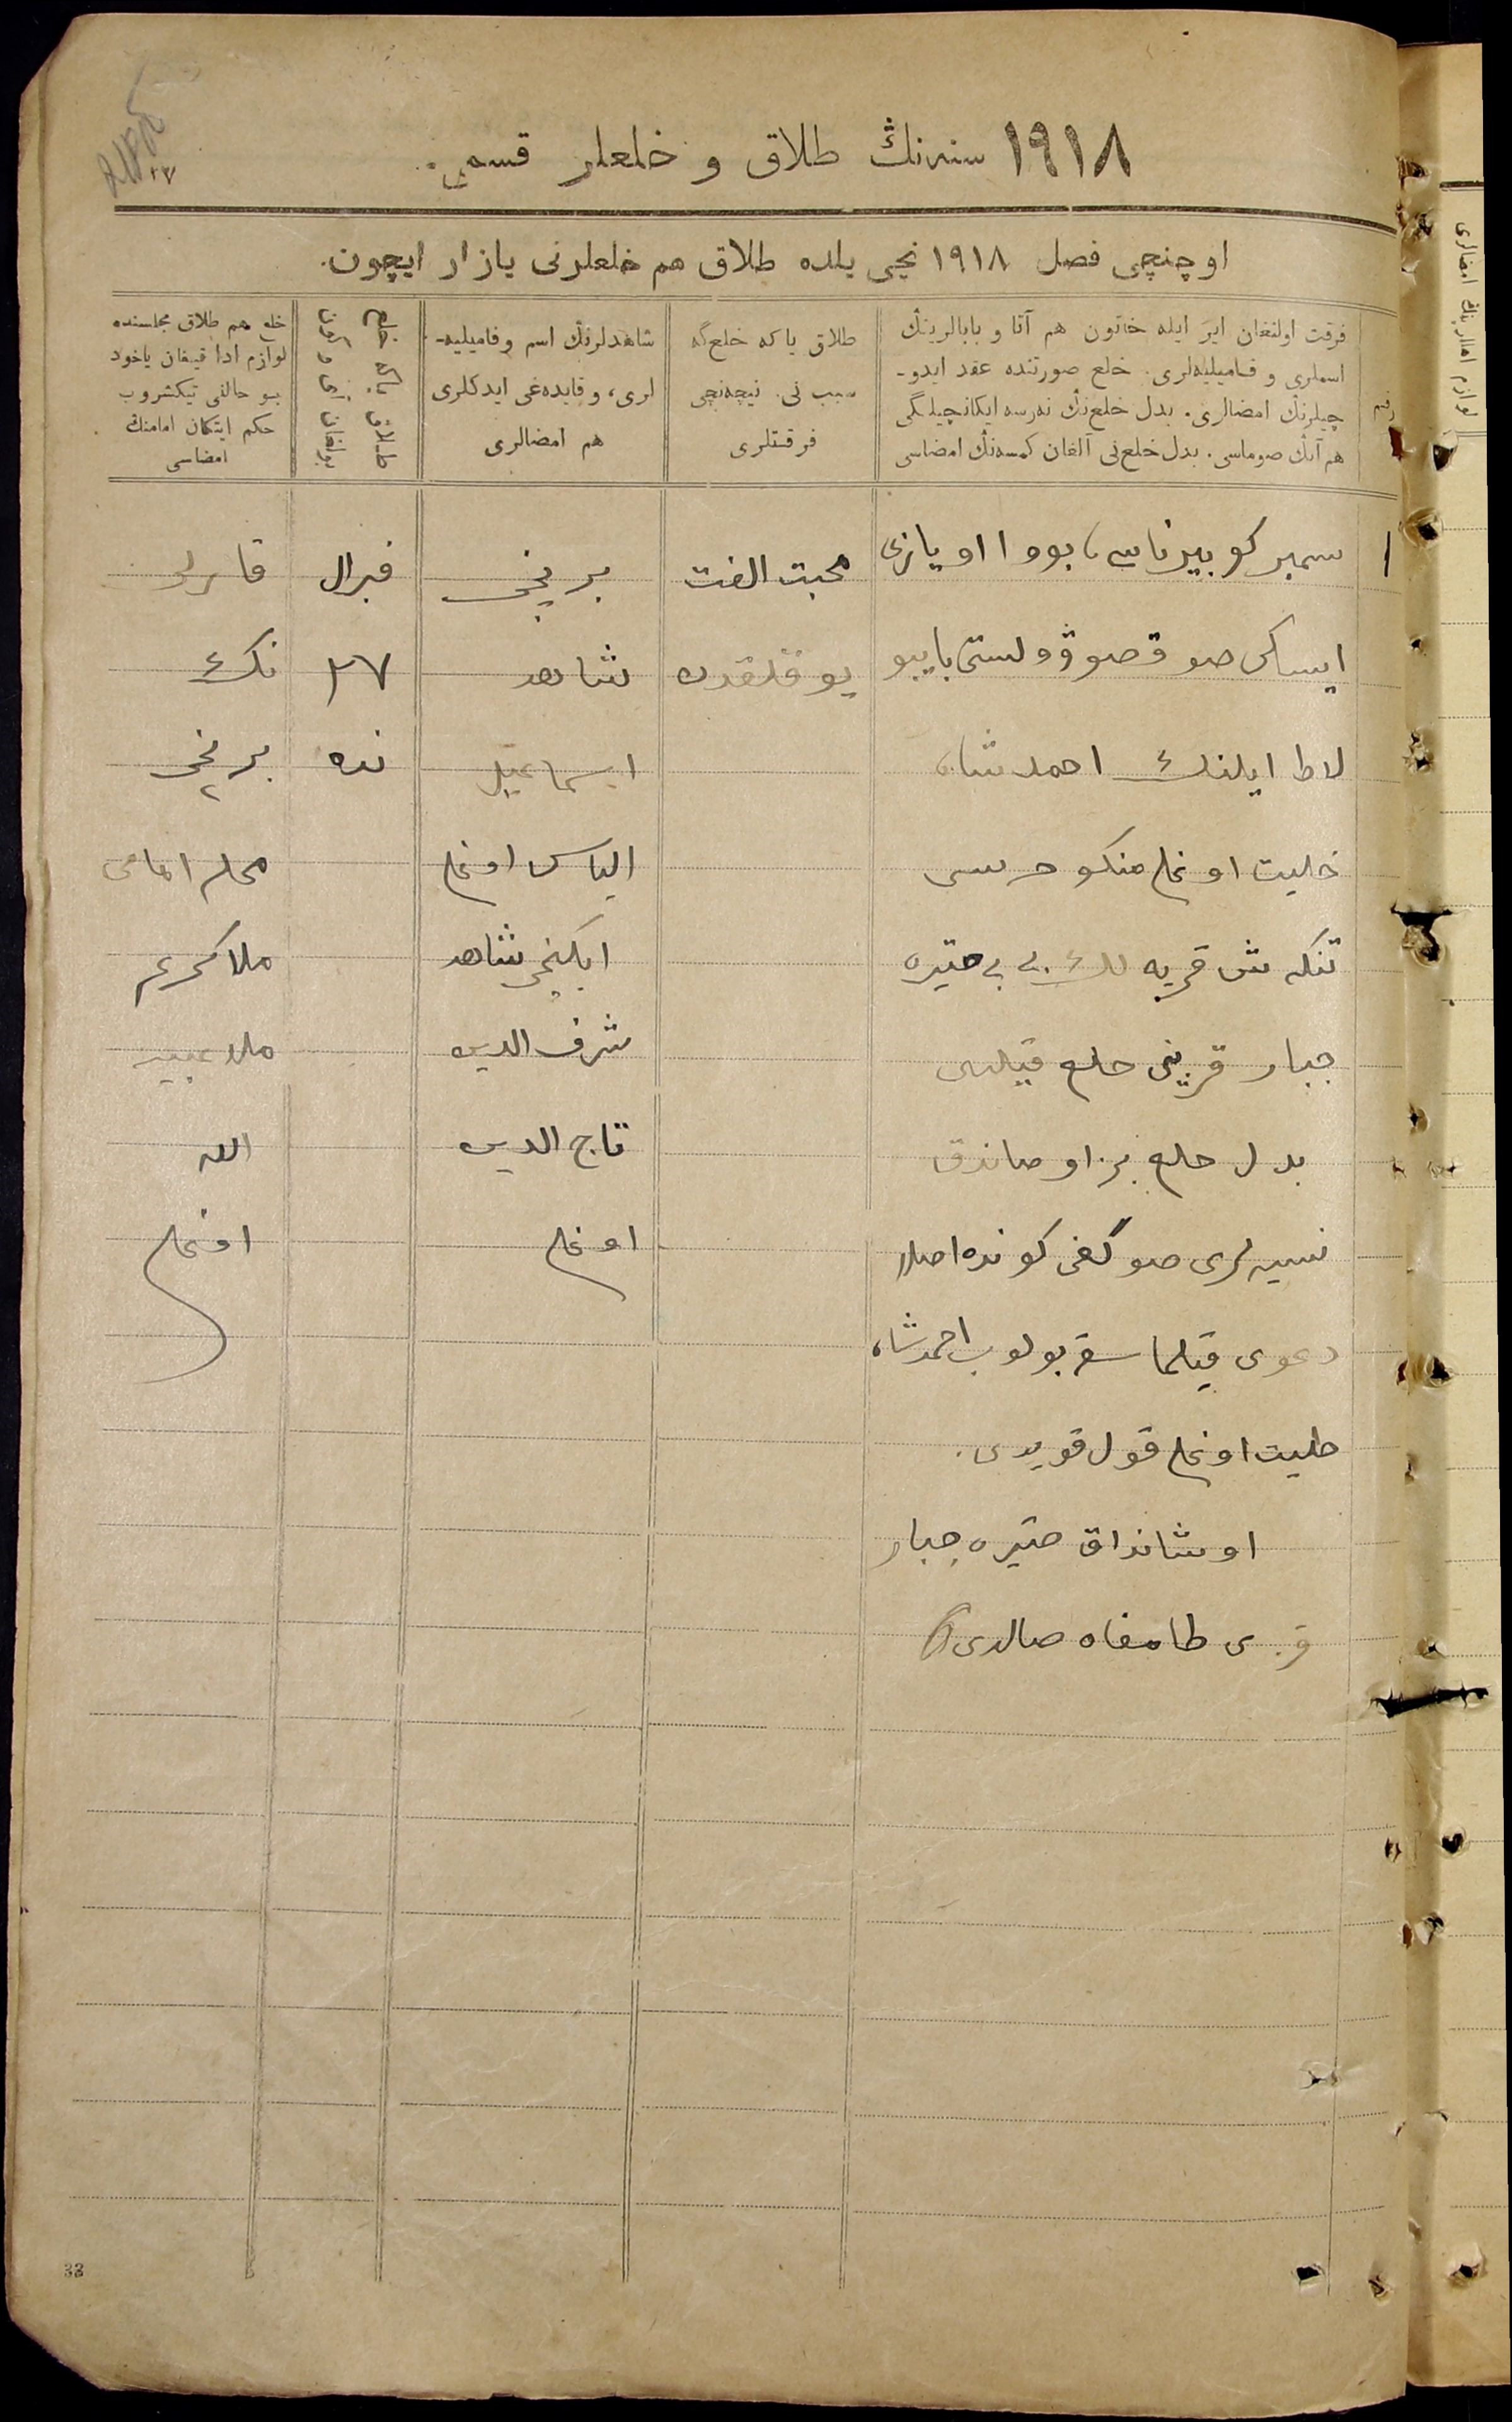 ١٩١٨ سنه‌نڭ طلاق و خلعلر قسمی.
اوچنچی فصل ١٩١٨ نچی یلده طلاق هم خلعلرنی یازار ایچون.
رقم
فرقت اولنغان ایر ایله خاتون هم آتا و بابالرینڭ
اسملری و فامیلیه‌لری. خلع صورتنده عقد ایدو-
چیلرنڭ امضالری. بدل خلع‌نڭ نه‌رسه ایکانچیلگی
هم آنڭ صوماسی. بدل خلع‌نی آلغان کمسه‌نڭ امضاسی
طلاق یا که خلع‌گه
سبب نی. نیچه‌نچی
فرقتلری
شاهدلرنڭ اسم و فامیلیه-
لری، و قایده‌غی ایدکلری
هم امضالری
طلاق یاکه خلع
بولغان آی و کون
خلع هم طلاق مجلسنده
لوازم ادا قیلغان یاخود
بو حالنی تیکشروب
حکم ایتکان امامنڭ
امضاسی
١
سمبر کوبیرناسی بووا اویازی
ایساکی صوقصوڤولستی بایبو
لاط ایلنڭ احمدشاه
خلیت اوغلی منکوحه‌سی
تنکه‌ش قریه‌لك بی بی حتیره
جبار قزینی خلع قیلدی
بدل خلع بر اوصاندق
نسیه‌لری صوڭغی کونده اصلا
دعوی قیلماسقه بولوب احمدشاه
خلیت اوغلی قول قویدی.
اوشانداق حتیره جبار
قزی طامغاه صالدی
محبت الفت
یوقلقدن
برنچی
شاهد
اسماعیل
الیاس اوغلی
ایکنچی شاهد
شرف الدین
تاج الدین
اوغلی
فبرال
٢٧
نده
قارلی
نڭ
برنچی
محله امامی
ملا کریم
ملا عبید
الله
اوغلی
33